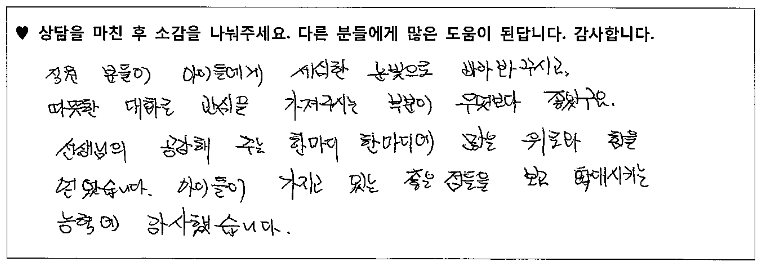 ♥ 상담을 마친 후 소감을 나눠주세요. 다른 분들에게 많은 도움이 된답니다. 감사합니다.
직원 분들이 아이들에게 세심한 눈빛으로 봐주시고,
따뜻한 대화로 관심을 가져주시는 부분이 무엇보다 좋았구요.
선생님의 공감해 주는 한마디 한마디에 많은 위로와 힘을
얻었습니다. 아이들이 가지고 있는 좋은 점들을 보고 확대시키는
능력에 감사했습니다.